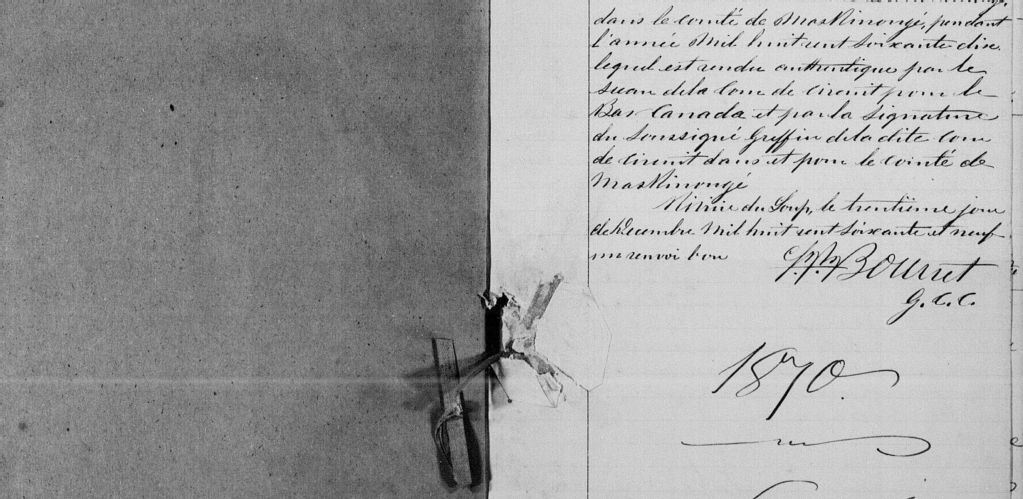 dans le comté de Maskinongé, pendant
l'année Mil huit cent soixante dix
lequel est rendu authentique par le
sceau de la Cour de Circuit pour le
Bas Canada et par la signature
du Soussigné Greffier de la dite Cour
de Circuit dans et pour le comté de
Maskinongé
Rivière du Loup, le trentième jour
de Décembre Mil huit cent soixante et neuf
un renvoi bon
Bourret
G. C. C.
1870.